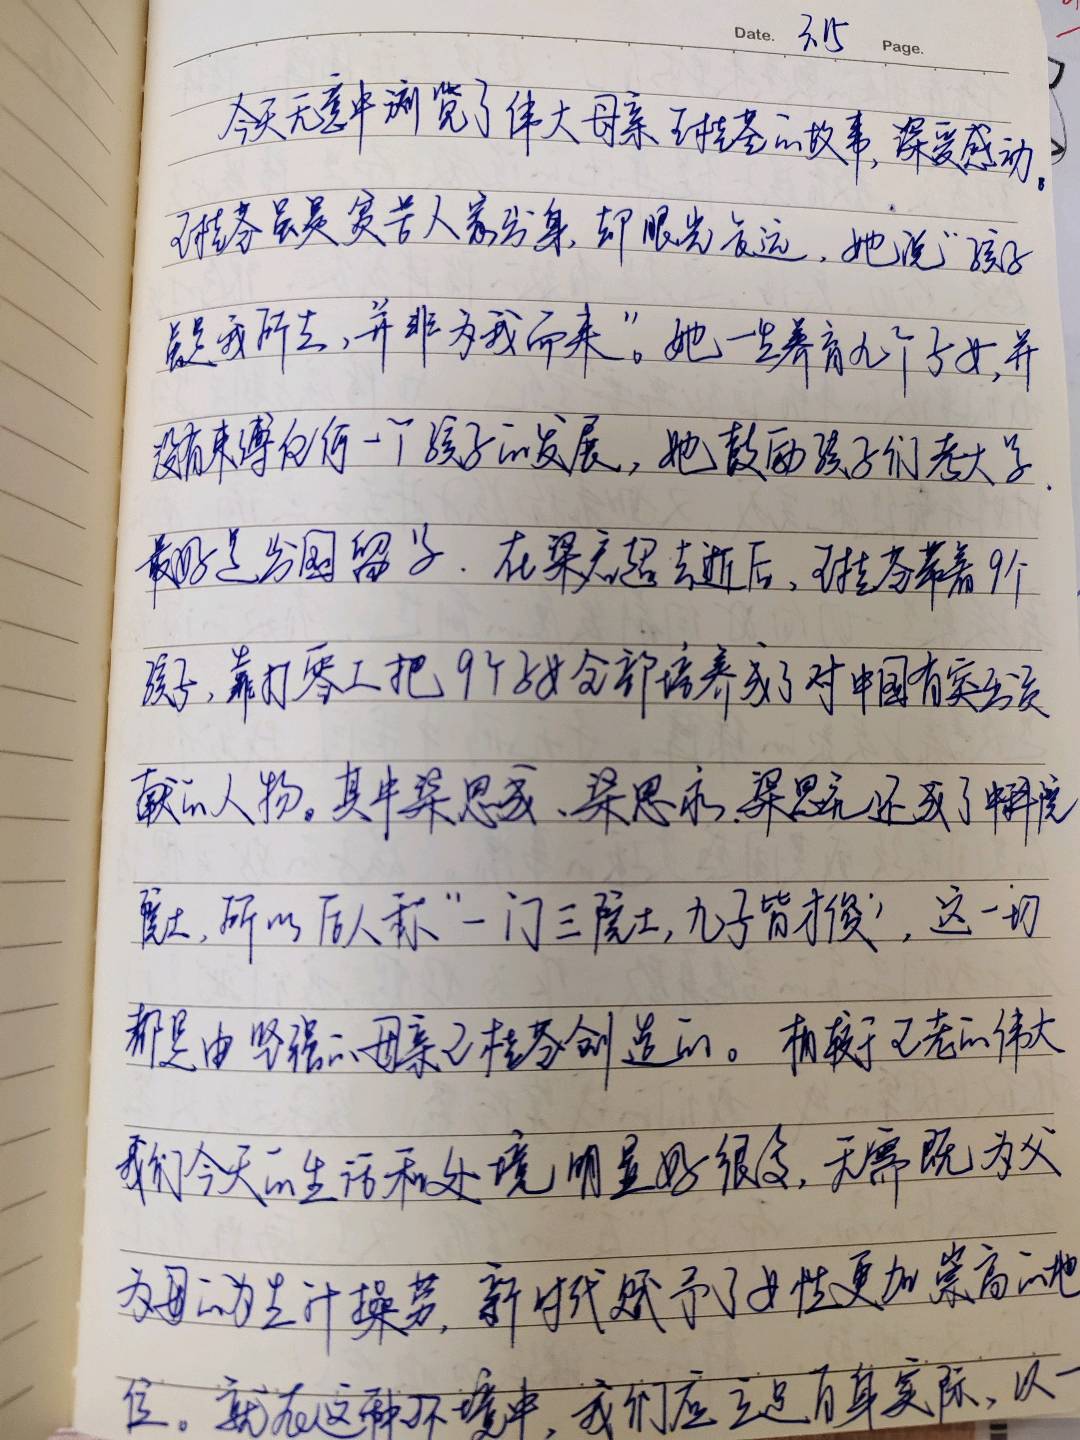 Date. 3.15 Page.
今天无意中浏览了伟大母亲王桂荃的故事,深受感动。
王桂荃虽是贫苦人家出身,却眼光长远,她说“孩子
是我所生,并非为我而来”。她一生养育九个子女,并
没有束缚任何一个孩子的发展,她鼓励孩子们考大学.
最好是出国留学.在梁启超去逝后,王桂荃带着9个
孩子,靠打零工把9个子女全部培养成了对中国有突出贡
献的人物。其中梁思成、梁思永、梁思礼还成了中科院
院士,所以后人称“一门三院士,九子皆才俊”,这一切
都是由坚强的母亲王桂荃创造的。相较于王老的伟大
我们今天的生活和处境明显好很多,无需既为父
为母的为生计操劳,新时代赋予了女性更加崇高的地
位。就在这种环境中,我们应立足自身实际,以一